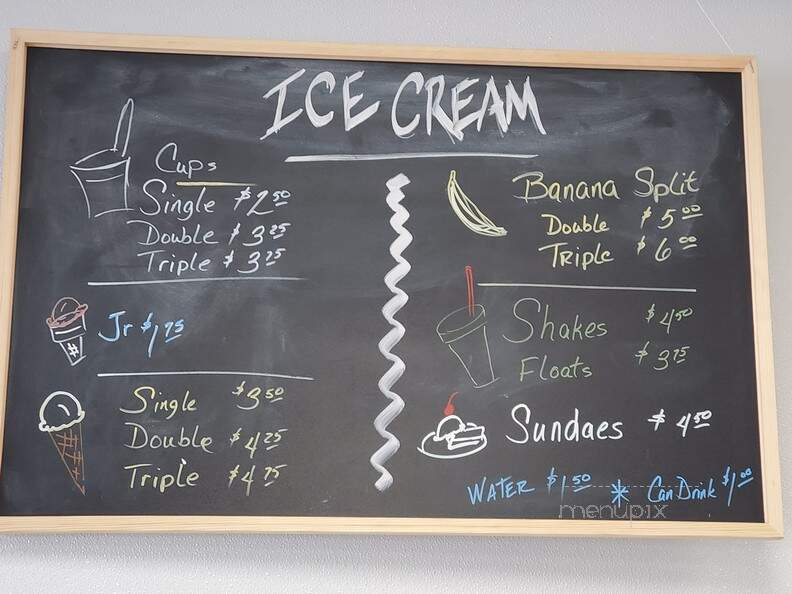 ICE CREAM
Cups
Single $2.50
Double $3.25
Triple $3.75
Jr $1.75
$
Single $3.50
Double $4.25
Triple $4.75
Banana Split
Double $5.00
Triple $6.00
Shakes $4.50
Floats $3.75
Sundaes $4.50
WATER $1.50 * Can Drink $1.00
menupix